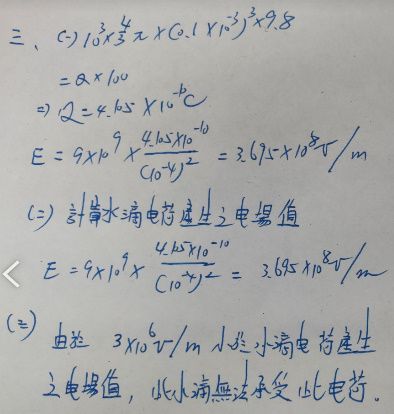 三、(一) 10³×4/3π×(0.1×10⁻³)³×9.8
=Q×100
⇒ Q=4.105×10⁻¹⁰C
E = 9×10⁹ × 4.105×10⁻¹⁰/(10⁻⁴)² = 3.695×10⁸ v/m
(二) 計算水滴電荷產生之電場值
E = 9×10⁹× 4.105×10⁻¹⁰/(10⁻⁴)² = 3.695×10⁸ v/m
(三) 由於 3×10⁶ v/m 小於水滴電荷產生
之電場值，此水滴無法承受此電荷。